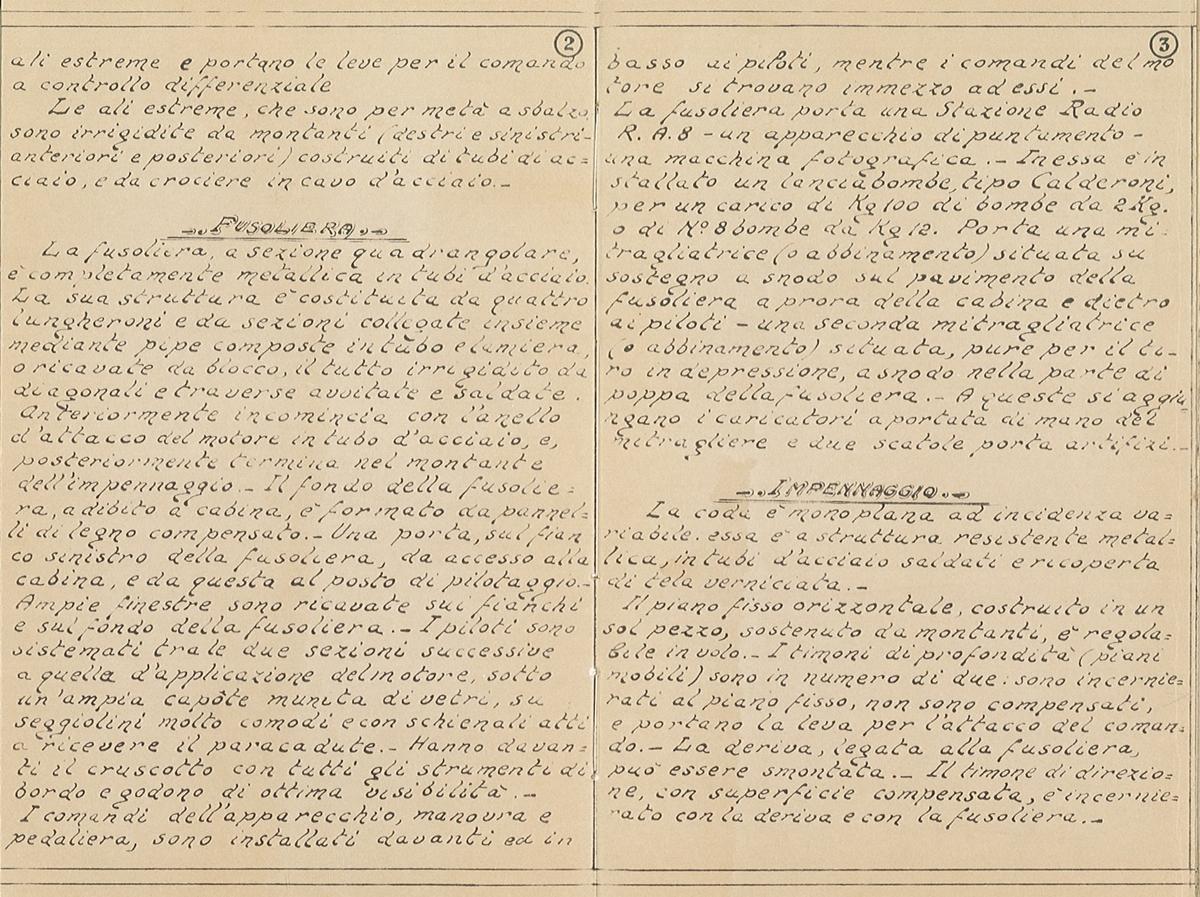 2
ali estreme e portano le leve per il comando
a controllo differenziale
Le ali estreme, che sono per metà a sbalzo,
sono irrigidite da montanti (destri e sinistri-
anteriori e posteriori) costruiti di tubi di ac=
ciaio, e da crociere in cavo d'acciaio.-
FUSOLIERA
La fusoliera, a sezione quadrangolare,
è completamente metallica in tubi d'acciaio.
La sua struttura è costituita da quattro
lungheroni e da sezioni collegate insieme
mediante pipe composte in tubo e lamiera,
o ricavate da blocco, il tutto irrigidito da
diagonali e traverse avvitate e saldate.
Anteriormente incomincia con l'anello
d'attacco del motore in tubo d'acciaio, e,
posteriormente termina nel montante
dell'impennaggio.- Il fondo della fusolie=
ra, adibito a cabina, è formato da pannel=
li di legno compensato.- Una porta, sul fian
co sinistro della fusoliera, da accesso alla
cabina, e da questa al posto di pilotaggio.-
Ampie finestre sono ricavate sui fianchi
e sul fondo della fusoliera.- I piloti sono
sistemati tra le due sezioni successive
a quella d'applicazione del motore, sotto
un'ampia capôte munita di vetri, su
seggiolini molto comodi e con schienali atti
a ricevere il paracadute.- Hanno davan=
ti il cruscotto con tutti gli strumenti di
bordo e godono di ottima visibilità.-
I comandi dell'apparecchio, manovra e
pedaliera, sono installati davanti ed in
3
basso ai piloti, mentre i comandi del mo
tore si trovano immezzo ad essi.-
La fusoliera porta una Stazione Radio
R.A.8 - un apparecchio di puntamento -
una macchina fotografica.- In essa è in
stallato un lanciabombe, tipo Calderoni,
per un carico di Kg 100 di bombe da 2 Kg.
o di N° 8 bombe da Kg 12. Porta una mi=
tragliatrice (o abbinamento) situata su
sostegno a snodo sul pavimento della
fusoliera a prora della cabina e dietro
ai piloti - una seconda mitragliatrice
(o abbinamento) situata, pure per il ti-
ro in depressione, a snodo nella parte di
poppa della fusoliera.- A queste si aggiu
ngano i caricatori a portata di mano del
mitragliere e due scatole porta artifizi.-
IMPENNAGGIO
La coda è monoplana ad incidenza va=
riabile. essa è a struttura resistente metal=
lica, in tubi d'acciaio saldati e ricoperta
di tela verniciata.-
Il piano fisso orizzontale, costruito in un
sol pezzo, sostenuto da montanti, è regola=
bile in volo.- I timoni di profondità (piani
mobili) sono in numero di due: sono incernie=
rati al piano fisso, non sono compensati,
e portano la leva per l'attacco del coman=
do.- La deriva, legata alla fusoliera,
può essere smontata.- Il timone di direzio=
ne, con superficie compensata, è incernie=
rato con la deriva e con la fusoliera.-